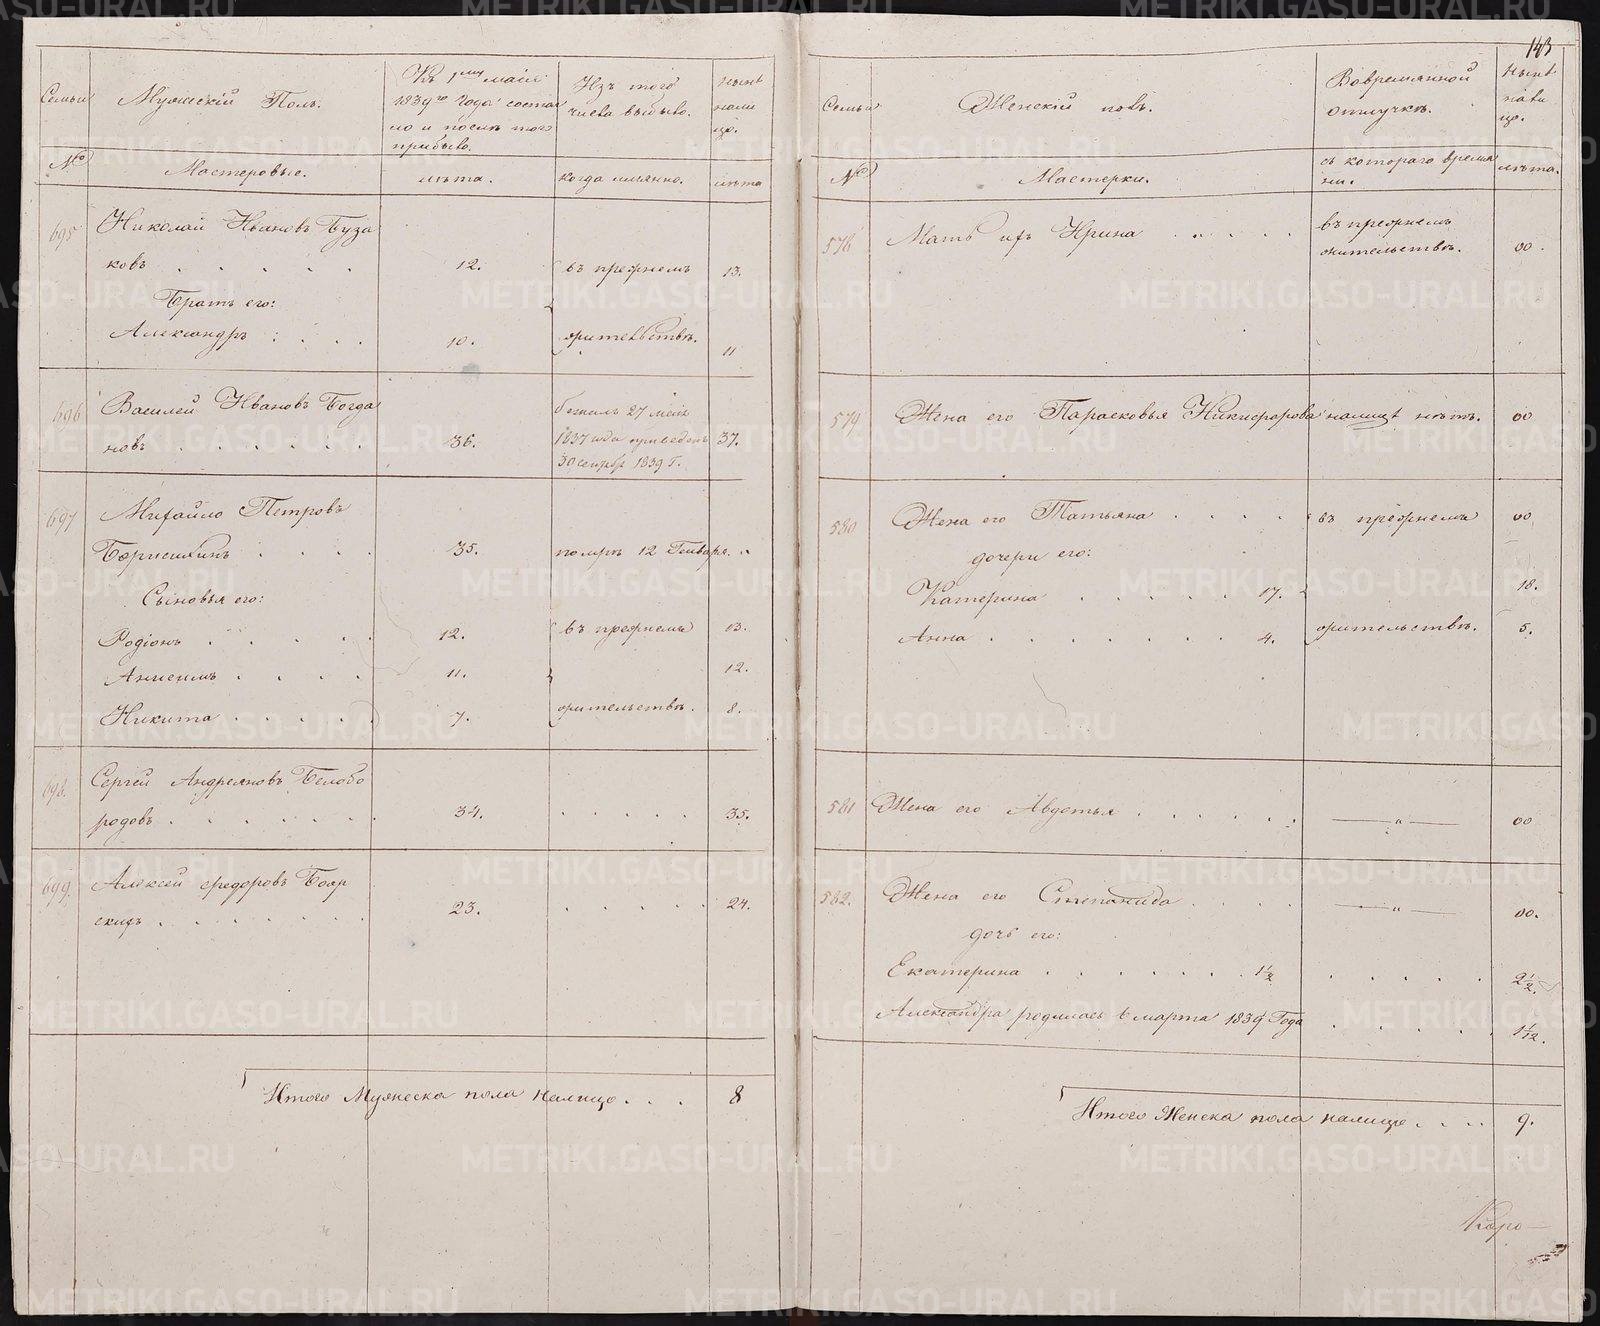 143
Семьи
Мужескiй Полъ.
Къ 1му маiя
1839го Года состоя
ло и послѣ того
прибыло.
Изъ того
числа выбыло.
нынѣ
нали
цо.
№
Мастеровые.
лѣта.
когда имянно.
лѣта
695
Николай Ивановъ Буза
ковъ . . . . . 12. въ прежнемъ 13.
Братъ его:
Александръ . . . . 10. жительствѣ. 11
696
Василей Ивановъ Богда
новъ . . . . . . 36.
бежалъ 27 маiя
1837 года приведенъ 37.
30 сентбр 1839 Г.
697
Михайло Петровъ
. . . . 35. помръ 12 Генваря. . .
Сыновья его:
Родiонъ . . . . . 12. въ прежнемъ 13.
. . . . 11. 12.
Никита . . . . . 7. жительствѣ. 8.
698.
Сергей Андреяновъ Белобо
родовъ . . . . . . . 34. . . . . . 35.
699.
Алексей Федоровъ Бояр
скихъ . . . . . . . 23. . . . . . 24.
Итого Мужеска пола налицо . . . 8
Семьи
Женскiй полъ.
Вовременной
отлучкѣ.
Нынѣ
нали
цо.
№
Мастерки.
съ котораго време
ни.
лѣта.
578
Мать ихъ Ирина . . . . .
въ прежнемъ
жительствѣ. 00.
579
Жена его Парасковья Никифорова налицѣ нѣтъ. 00
580
Жена его Татьяна . . . . въ прежнемъ 00
дочери его:
Катерина . . . . . . 17. 18.
Анна . . . . . . . . 4. жительствѣ. 5.
581
Жена его Авдотья . . . . . . —„— 00
582.
Жена его Степанида . . . . —„— 00.
дочь его:
Екатерина . . . . . . . 1½ . . . . . 2½.
Александра родилась 6 марта 1839 Года . . . . . . 1 1/12.
Итого Женска пола налицо . . . . 9.
METRIKI.GASO-URAL.RU